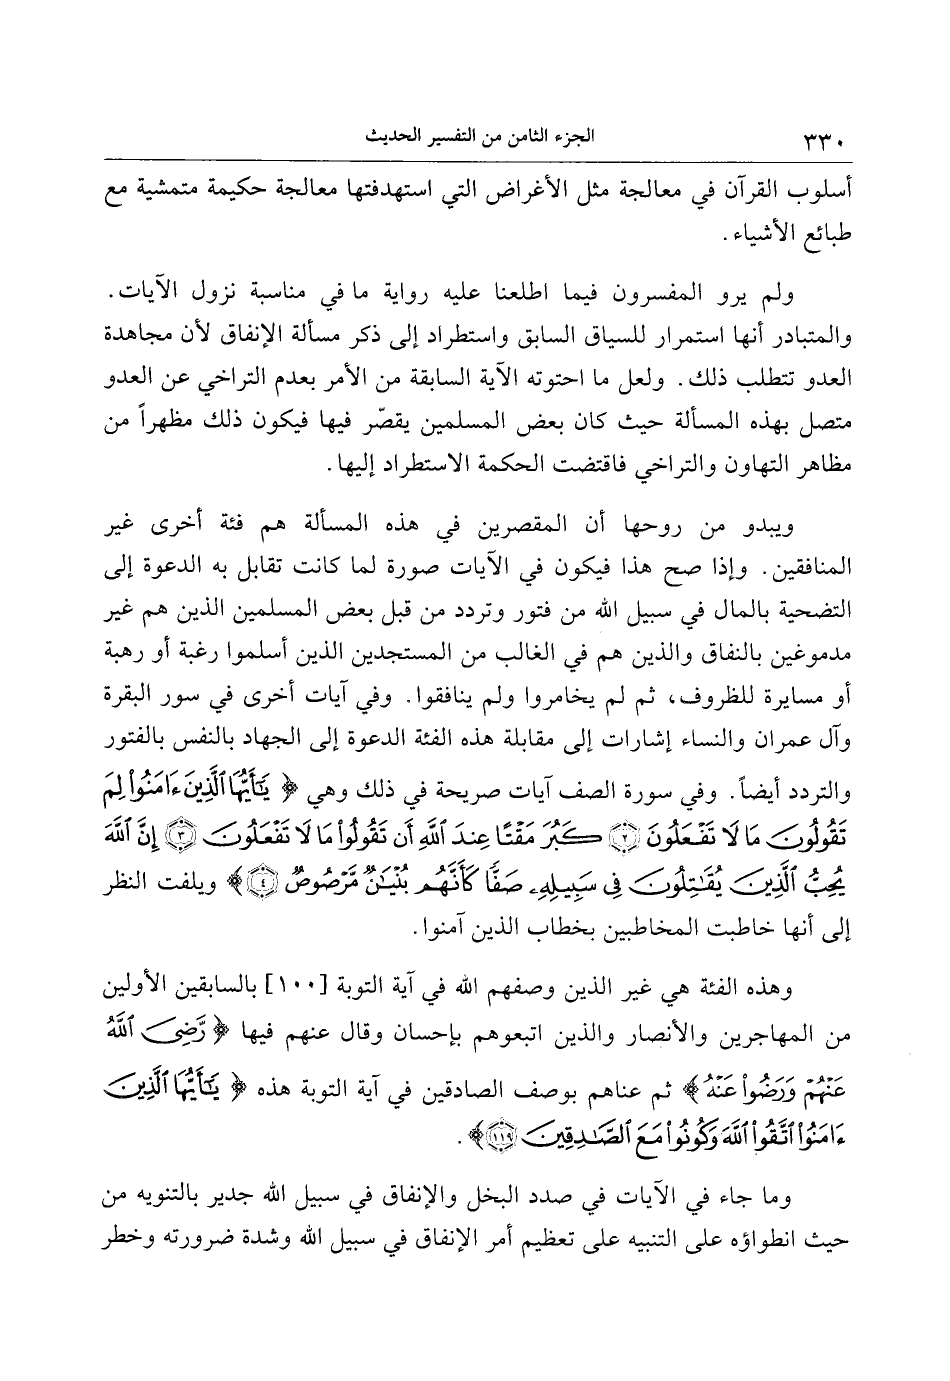 ٣٣٠ الجزء الثامن من التفسير الحديث
أسلوب القرآن في معالجة مثل الأغراض التي استهدفتها معالجة حكيمة متمشية مع
طبائع الأشياء.
ولم يرو المفسرون فيما اطلعنا عليه رواية ما في مناسبة نزول الآيات.
والمتبادر أنها استمرار للسياق السابق واستطراد إلى ذكر مسألة الإنفاق لأن مجاهدة
العدو تتطلب ذلك. ولعل ما احتوته الآية السابقة من الأمر بعدم التراخي عن العدو
متصل بهذه المسألة حيث كان بعض المسلمين يقصّر فيها فيكون ذلك مظهراً من
مظاهر التهاون والتراخي فاقتضت الحكمة الاستطراد إليها.
ويبدو من روحها أن المقصرين في هذه المسألة هم فئة أخرى غير
المنافقين. وإذا صح هذا فيكون في الآيات صورة لما كانت تقابل به الدعوة إلى
التضحية بالمال في سبيل الله من فتور وتردد من قبل بعض المسلمين الذين هم غير
مدموغين بالنفاق والذين هم في الغالب من المستجدين الذين أسلموا رغبة أو رهبة
أو مسايرة للظروف، ثم لم يخامروا ولم ينافقوا. وفي آيات أخرى في سور البقرة
وآل عمران والنساء إشارات إلى مقابلة هذه الفئة الدعوة إلى الجهاد بالنفس بالفتور
والتردد أيضاً. وفي سورة الصف آيات صريحة في ذلك وهي ﴿ يَٰٓأَيُّهَا ٱلَّذِينَ ءَامَنُواْ لِمَ
تَقُولُونَ مَا لَا تَفْعَلُونَ ﴿٢﴾ كَبُرَ مَقْتًا عِندَ ٱللَّهِ أَن تَقُولُواْ مَا لَا تَفْعَلُونَ ﴿٣﴾ إِنَّ ٱللَّهَ
يُحِبُّ ٱلَّذِينَ يُقَٰتِلُونَ فِى سَبِيلِهِۦ صَفًّا كَأَنَّهُم بُنْيَٰنٌ مَّرْصُوصٌ ﴿٤﴾ ﴾ ويلفت النظر
إلى أنها خاطبت المخاطبين بخطاب الذين آمنوا.
وهذه الفئة هي غير الذين وصفهم الله في آية التوبة [١٠٠] بالسابقين الأولين
من المهاجرين والأنصار والذين اتبعوهم بإحسان وقال عنهم فيها ﴿ رَّضِىَ ٱللَّهُ
عَنْهُمْ وَرَضُواْ عَنْهُ ﴾ ثم عناهم بوصف الصادقين في آية التوبة هذه ﴿ يَٰٓأَيُّهَا ٱلَّذِينَ
ءَامَنُواْ ٱتَّقُواْ ٱللَّهَ وَكُونُواْ مَعَ ٱلصَّٰدِقِينَ ﴿١١٩﴾ ﴾.
وما جاء في الآيات في صدد البخل والإنفاق في سبيل الله جدير بالتنويه من
حيث انطواؤه على التنبيه على تعظيم أمر الإنفاق في سبيل الله وشدة ضرورته وخطر